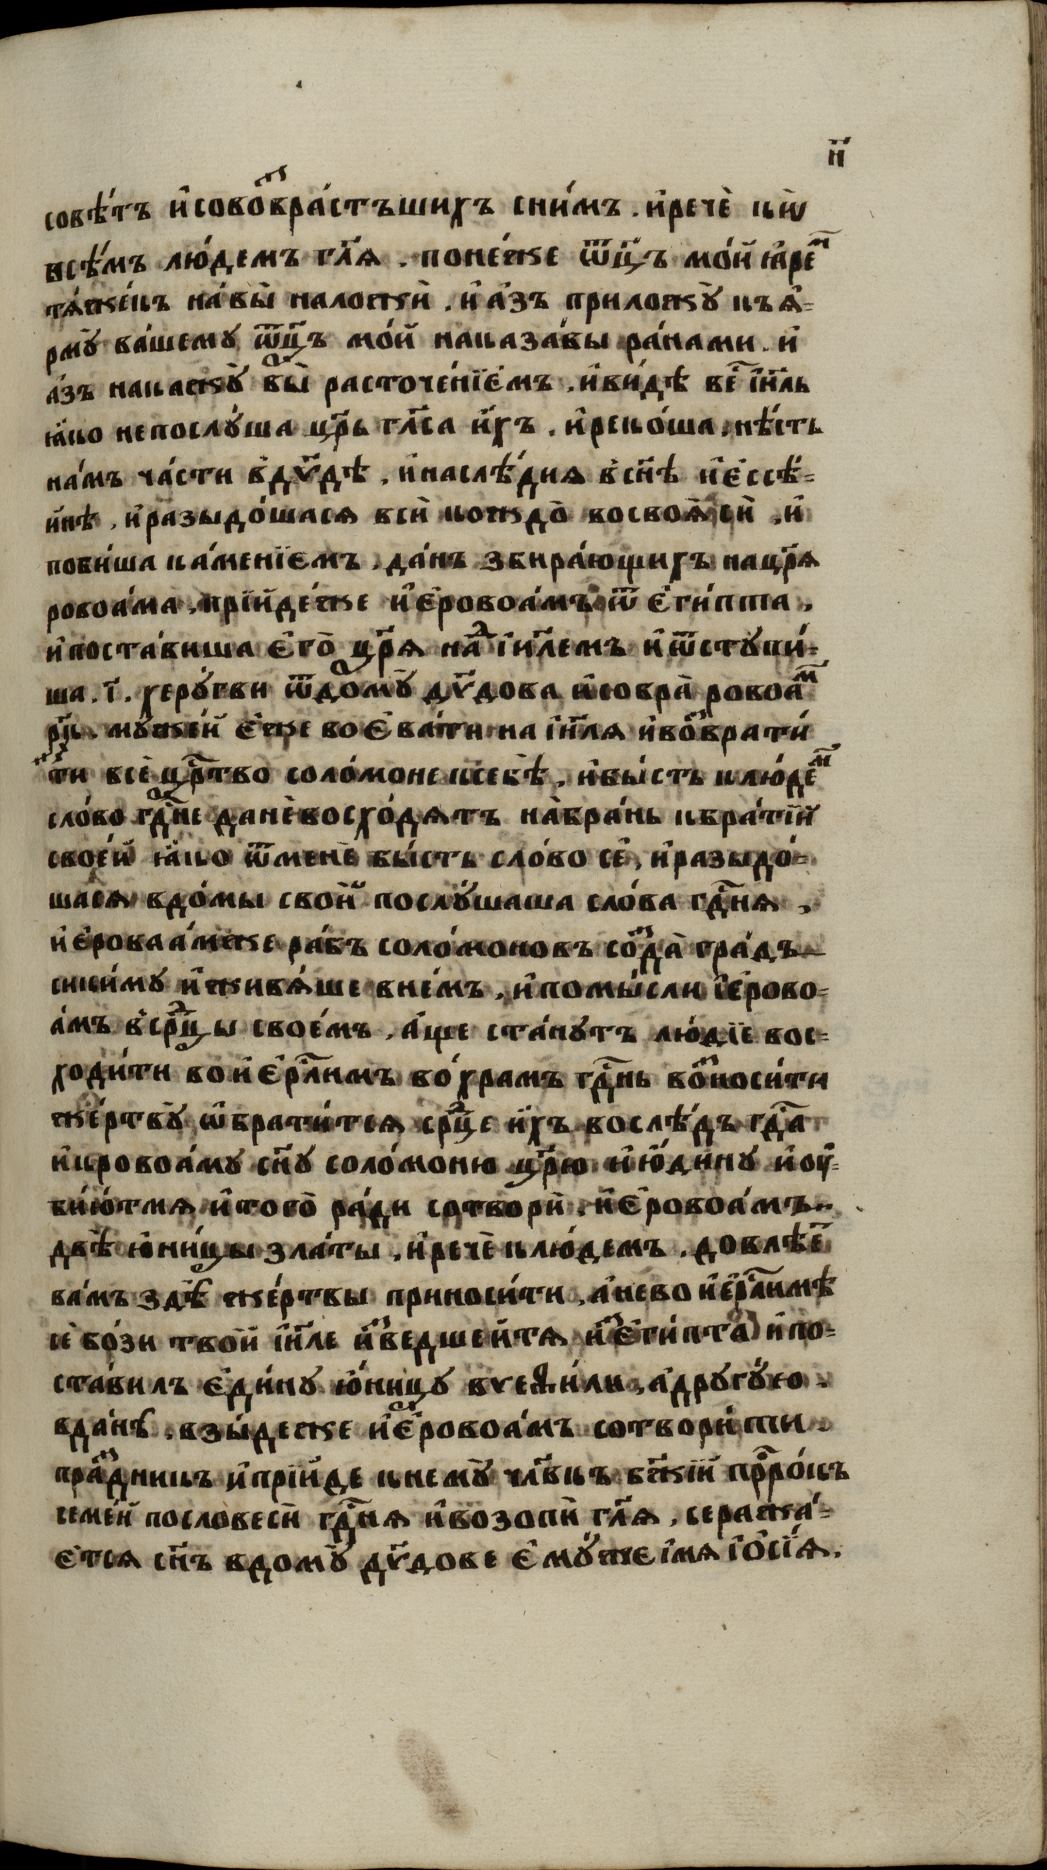 н҃
совѣ́тъ и҆совоⷥ҇ра́стъшихъ сни́мъ . и҆речѐ ко̀
всѣ́мъ лю́демъ гл҃я . поне́же ѿц҃ъ мо́й ꙗ҆ре́ᷟ
тѧ́жекъ на́вы̀ наложѝ . и҆ а҆́зъ приложу̀ къꙗ҆=
рму̀ ва́шему ѿц҃ъ мо́й наказа́вы ра́нами . и҆
а҆́зъ накажу̀ вы̀ расточе́нїемъ . и҆ви́дѣ веⷭ҇ і҆и҃ль
ꙗ҆́ко непослу́ша цр҃ь гла҃са и҆́хъ . и҆реко́ша , нѣ́сть
на́мъ ча́сти в̾дв҃дѣ , и҆наслѣ́дия в̾сн҃ѣ и҆е҆ссѣ́=
йнѣ , и҆разыдо́шася всѝ ко́ждо̀ восвоя҆́сѝ , и҆
поби́ша ка́менїемъ . да́нь збира́ющихъ нацр҃я
ровоа́ма , прїйде́же и҆е҆ровоа́мъ ѿ е҆ги́пта ,
и҆поста́виша е҆го̀ цр҃я наⷣ і҆и҃лемъ и҆ѿступи́=
ша . і҃ . херу́гви ѿдо́му̀ дв҃дова и҆собра̀ ровоа́ᷟ
рк҃ . му́же́й е҆́же воева́ти на і҆и҃ля и҆воⷥ҇врати́
ти всѐ црⷭ҇тво соло́моне ксебѣ̀ , и҆бы́сть клю́деᷟ
сло́во гдⷭ҇не данѐвосхо́дятъ на̀бра́нь кбра́тїи
свое́й ꙗ҆́ко ѿменѐ бы́сть сло́во сѐ , и҆разыдо́=
шася вдо́мы свои̑ послу́шаша сло́ва гдⷭ҇ня ,
и҆е҆рова а́мже ра́бъ соло́моновъ соⷥ҇да̀ гра́дъ
сики́му и҆живя́ше вне́мъ , и҆помы́сли і҆е҆рово=
а́мъ в̾срⷣцы свое́мъ , а҆́ще ста́нутъ лю́дїе вос=
ходи́ти во и҆е҆рⷭ҇лимъ во́храмъ гдⷭ҇нь воⷥ҇носи́ти
же́ртву̀ ѡ҆брати́тся срⷣце и҆́хъ вослѣ́дъ гдⷭ҇а
и҆кровоа́му сн҃у соло́моню цр҃ю и҆ю҆ди́ну и҆ оу҆=
бию́тмя и҆того̀ ра́ди сотворѝ . и҆е҆ровоа́мъ
двѣ̀ ю҆́ницы зла́ты , и҆речѐ клю́демъ . довлѣ́еⷮ
ва́мъ здѣ̀ же́ртвы приноси́ти , а҆нево и҆е҆рⷭ҇лимѣ
се́ бо́зи твоѝ і҆и҃ле и҆ⷥ҇ведше́йтя и҆ⷥ҇ е҆ги́пта и҆по=
ста́вилъ е҆ди́ну ю҆́ницу вгеѳи́ли , а҆другу́ю .
вда́нѣ . взы́деже и҆е҆ровоа́мъ сотвори́ти .
праⷥ҇дникъ и҆прїи́де кнему̀ чл҃вкъ бж҃ий прⷪ҇ро́къ
семе́й пословесѝ гдⷭ҇ня и҆возопѝ гл҃я , серажда́=
ется сн҃ъ вдому̀ дв҃дове е҆му́же і҆мя і҆ѡ҆сі́я .